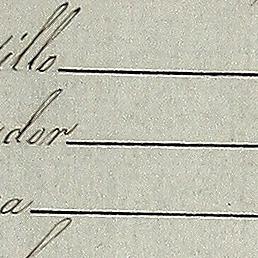 illo
dor
a